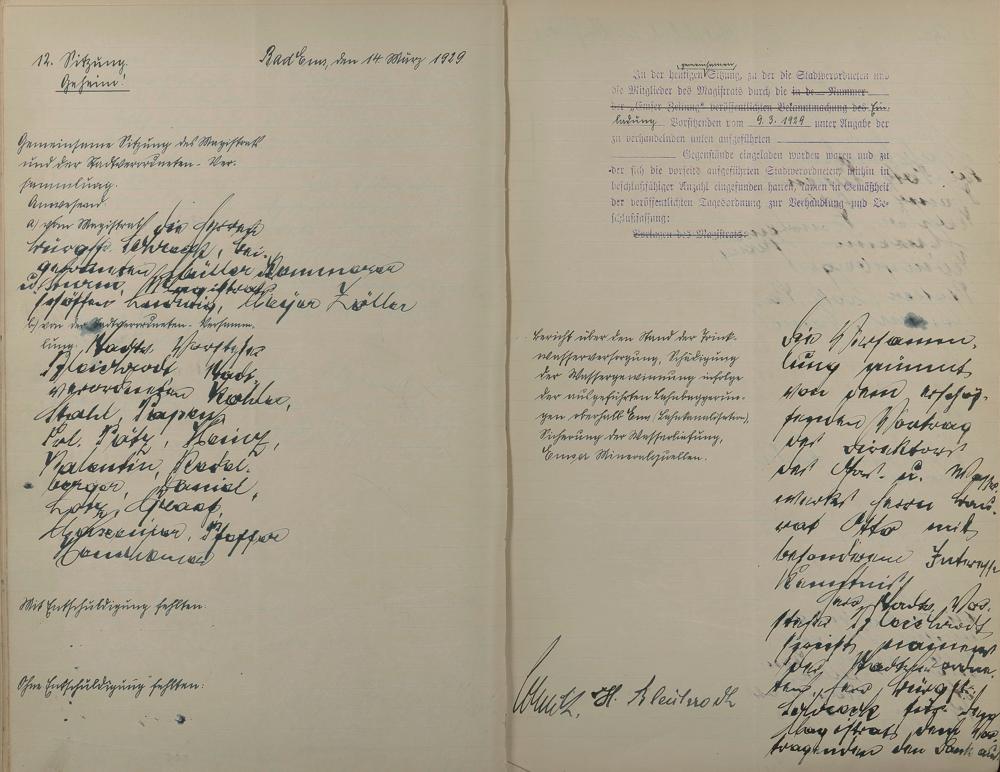 12. Sitzung.
Geheim!
Bad Ems, den 14 März 1929
Gemeinsame Sitzung des Magistrats
und der Stadtverordneten-Ver-
sammlung.
Anwesend
a) vom Magistrat die Herren
Bürgstr. Schreck, Bei-
geordneten Müller Kammerer
u. Sturm, Magistrats
schöffen Ludwig, Meyer Zöller
b) von der Stadtverordneten-Versamm-
lung: Stadtv. Vorsteher
Bleichrodt Stadt
verordneten Köhler,
Stahl,
Rötz, Heinz,
Valentin,
berger, Daniel,
Lotz, Graaf,
Pfeffer
Mit Entschuldigung fehlten:
Ohne Entschuldigung fehlten:
gemeinsamen
In der heutigen Sitzung, zu der die Stadtverordneten und
die Mitglieder des Magistrats durch die in de Nummer
der „Emser Zeitung“ veröffentlichten Bekanntmachung des Ein-
ladung Vorsitzenden vom 9. 3. 1929 unter Angabe der
zu verhandelnden unten aufgeführten
Gegenstände eingeladen worden waren und zu
der sich die vorseid aufgeführten Stadtverordneten, mithin in
beschlußfähiger Anzahl eingefunden hatten, kamen in Gemäßheit
der veröffentlichten Tagesordnung zur Verhandlung und Be-
schlußfassung:
Vorlagen des Magistrats:
Bericht über den Stand der Trink-
wasserversorgung, Schädigung
der Wassergewinnung infolge
der ausgeführten Lahnbaggerun-
gen oberhalb Ems (Lahnkanalisation),
Sicherung der Wasserlieferung,
Emser Mineralquellen.
Die Versamm-
lung nimmt
von dem erschöp-
fenden Vortrag
des Direktors
des Gas- u. Wasser
werkes Herrn Bau-
rat Otto mit
besonderem Interesse
Kenntnis.
Herr Stadtv. Vor-
steher Bleichrodt
spricht namens
der Stadtverordne-
ten, Herr Bürgstr.
Schreck für den
Magistrat dem Vor-
tragenden den Dank aus
H. Bleichrodt